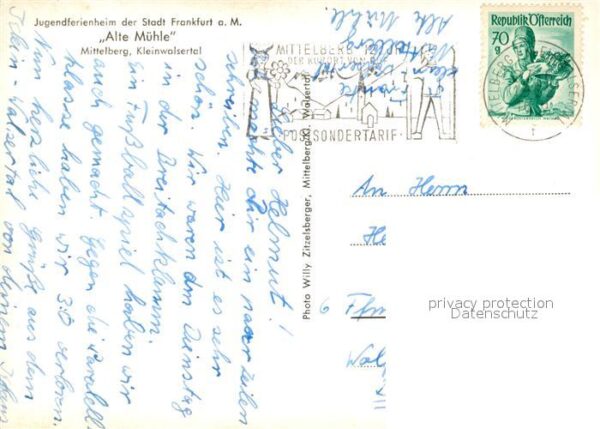 Jugendferienheim der Stadt Frankfurt a. M.
„Alte Mühle"
Mittelberg, Kleinwalsertal
Alte Mühle
Lieber Helmut!
Ich möchte dir ein paar Zeilen
schreiben. Hier ist es sehr
schön. Wir waren am Dienstag
in der Breitachklamm.
Ein Fußballspiel haben wir
auch gemacht. Gegen die Parallel
klasse haben wir 3:0 verloren.
Nun herzliche Grüße aus dem
Klein-Walsertal von deinem
Photo Willy Zitzelsberger, Mittelberg/Kl. Walsertal
MITTELBERG 1220 M
DER KURORT VON
POSTSONDERTARIF
Republik Österreich
70
g
An Herrn
He
6 Ffm
Wal
privacy protection
Datenschutz